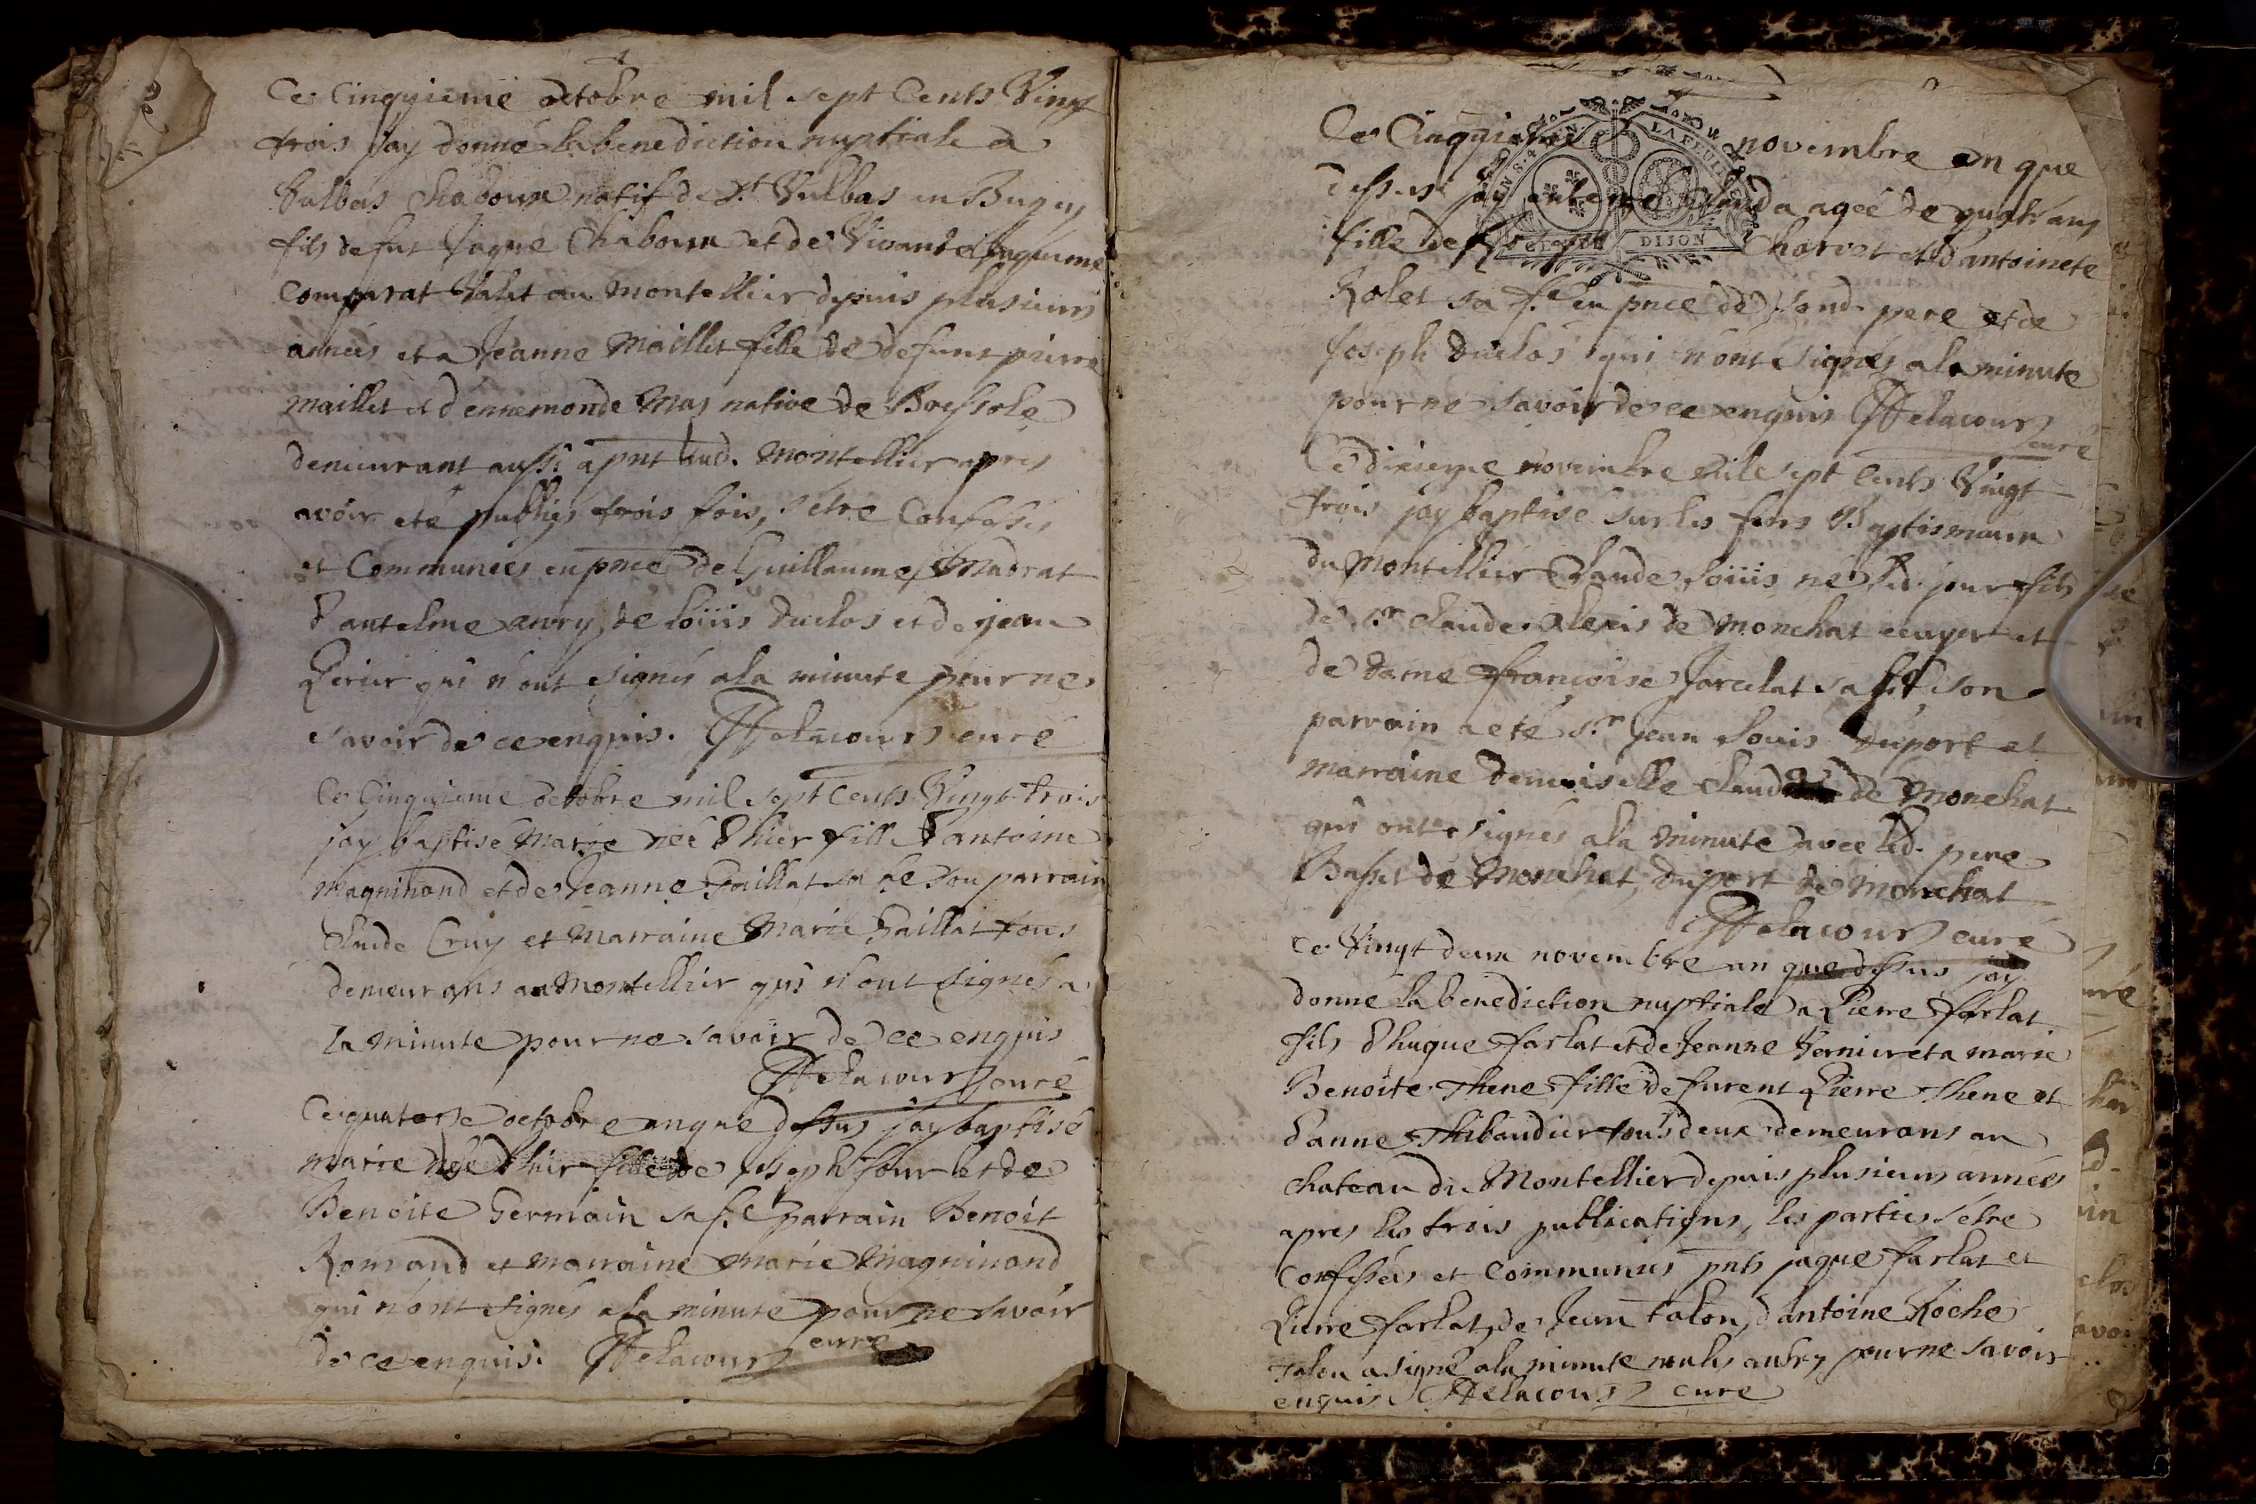 Ce Cinquieme octobre mil sept Cents Vingt
trois jay donné la benediction nuptiale a
Vulbas Chaboux natif de St Vulbas en Bugey
fils de fut Jaque Chaboux et de Vivande
Comparat Valet au Montellier depuis plusieurs
années et a Jeanne Maillet fille de defunt pierre
maillet et dennemonde Mas native de
demeurant aussi apnt aud. Montellier apres
avoir eté publiés trois fois, s'etre Confessés
et Communiés en pnce de Guillaume Madrat
d'antelme de loüis Duclos et de jean
Perier qui n'ont signés ala minute pour ne
savoir de ce enquis. Delacour curé
Ce Cinquieme octobre mil sept Cents Vingt trois
jay baptisé Marie neé d'hier fille d'antoine
Magninand et de Jeanne Gaillat sa fe son parrain
Claude Cruy et Marraine Marie Gaillat tous
demeurans au Montellier qui n'ont signés a
la minute pour ne savoir de ce enquis
Delacour curé
Ce quatorse octobre an que dessus jay baptisé
marie neé d'hier fille de joseph four et de
Benoite Germain sa fe parrain Benoit
Romand et marraine marie Magninand
qui n'ont signés ala minute pour ne savoir
de ce enquis. Delacour curé
Ce Cinquieme novembre an que
LA FEUILLE
dessus jay enterré Clauda ageé de quatre ans
fille de Charvet et d'antoinete
DIJON
Rolet sa fe en pnce de sond. pere et de
joseph Duclos qui n'ont signés ala minute
pour ne savoir de ce enquis Delacour
curé
Ce dixieme novembre mile sept Cents Vingt
trois jay baptisé sur les fons Baptismaux
du Montellier Claude loüis né led. jour fils
de sr claude alexis de Monchat ecuyer et
de dame françoise Jarcelat sa fe, son
parrain a eté sr jean Louis Duport et
marraine demoiselle Claudine de Monchat
qui ont signés ala minute avec led. pere
Basset de Monchat, Duport de Monchat
Delacour curé
Ce Vingt deux novembre an que dessus jay
donné la benediction nuptiale a Pierre farlat
fils d'huque farlat et de Jeanne Vernier et a marie
Benoite Thene fille de furent Pierre Thene et
d'anne Thibaudier tous deux demeurans au
chateau du Montellier depuis plusieurs années
apres les trois publications, les parties s'etre
Confessées et Communiés pnts jaque farlat et
Pierre farlat, de Jean talon, d'antoine Roche
Talon a signé ala minute pour ne savoir
enquis Delacour curé